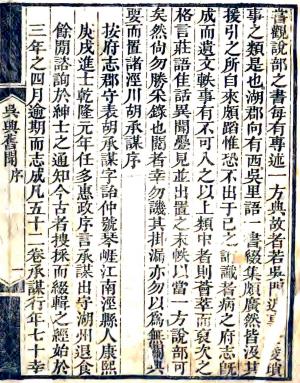 嘗觀說部之書每有專述一方典故者若吳門
事之類是也湖郡向有西吳里語一書綴集頗廣然皆汲其
援引之所自來頗蹈惟恐不出于己之譏識者病之府志旣
成而遺文軼事有不可入之以上類中者則薈萃而裒次之
格言莊語佳話異聞釁見並出置之末帙以當一方說部可
矣然尙勿勝采錄也閱者幸勿譏其挂漏亦勿以爲無關典
要而置諸涇川胡承謀序
按府志郡守表胡承謀字詒仲號琴崕江南涇縣人康熙
庚戌進士乾隆元年任多惠政序言承謀出守湖州退食
餘閒諮詢於紳士之通知今古者搜採而綴輯之經始於
三年之四月逾期而志成凡五十二卷承謀行年七十幸
吳興舊聞 序 一